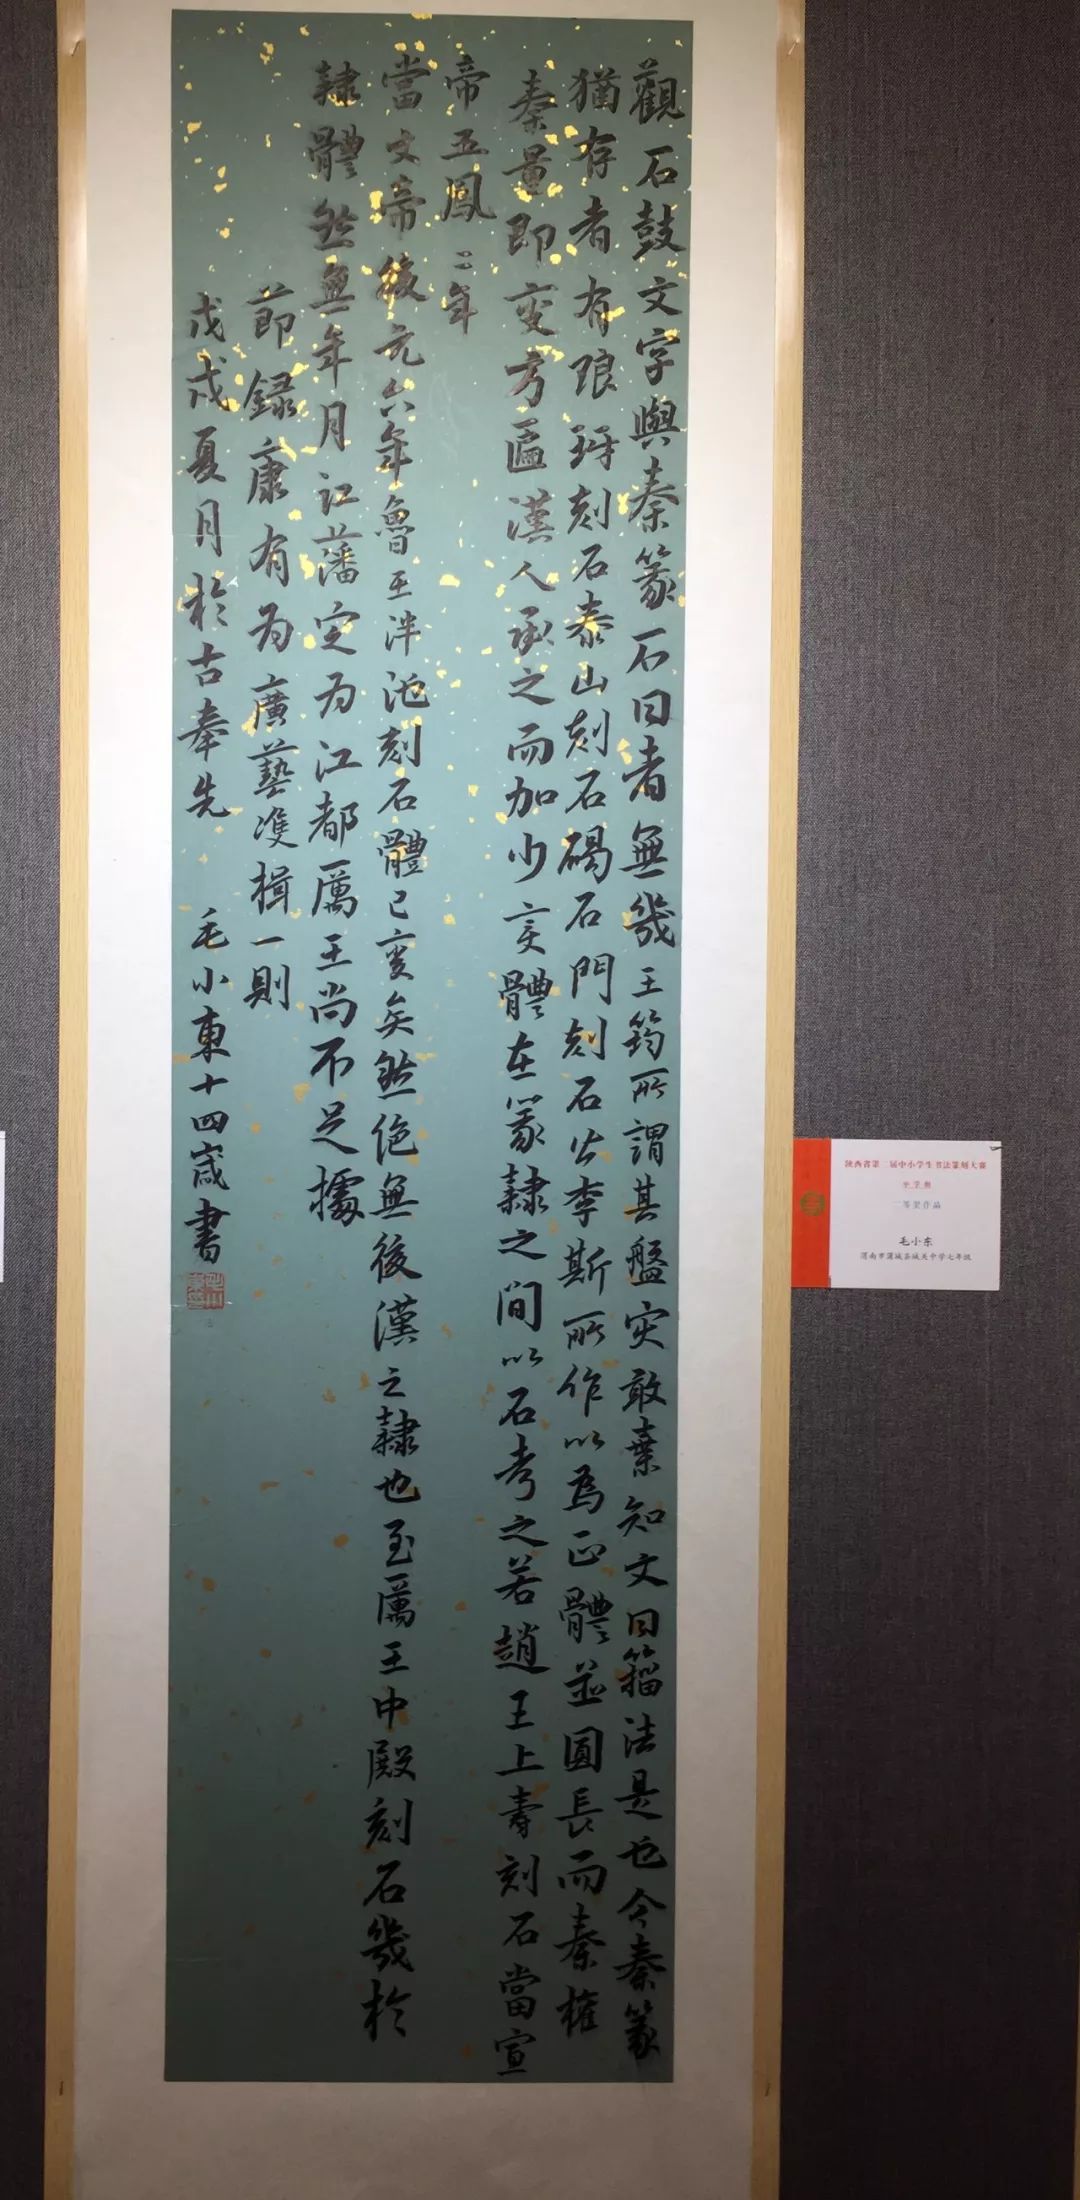 觀石鼓文字與秦篆石曰者無幾王筠所謂其盤灾敢棄知文曰籀法是也今秦篆
猶存者有琅玡刻石泰山刻石碣石門刻石公李斯所作以為正體並圓長而秦權
秦量即变方匾漢人承之而加少变體在篆隸之間以石考之若趙王上壽刻石當宣
帝五鳳二年
當文帝後元六年魯王泮池刻石體已变矣然絶無後漢之隸也至厲王中殿刻石幾於
隸體然無年月江藩定为江都厲王尚不足據
節録康有为廣藝双楫一則
戊戌夏月於古奉先 毛小東十四歲書
陕西省第二届中小学生书法篆刻大赛
中学组
二等奖作品
毛小东
渭南市蒲城县城关中学七年级